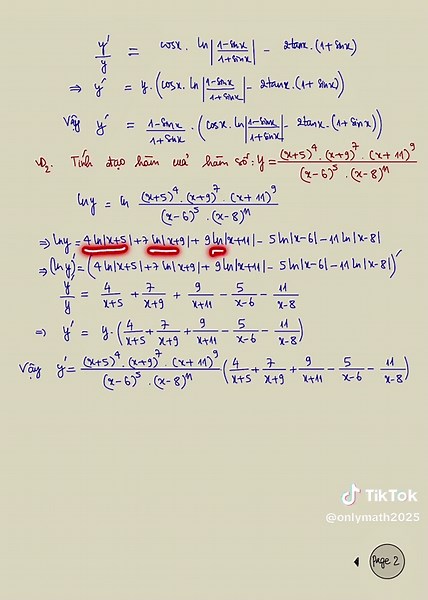 y'/y = cosx. ln|1-sinx/1+sinx| - 2tanx.(1+sinx)
⇒ y' = y.(cosx.ln|1-sinx/1+sinx| - 2tanx.(1+sinx))
Vậy y' = 1-sinx/1+sinx . (cosx.ln|1-sinx/1+sinx| - 2tanx.(1+sinx))
D2. Tính đạo hàm của hàm số: y = (x+5)^4.(x+9)^7.(x+11)^9/(x-6)^5.(x-8)^11
lny = ln (x+5)^4.(x+9)^7.(x+11)^9/(x-6)^5.(x-8)^11
⇒ lny = 4ln|x+5|+7ln|x+9|+9ln|x+11|-5ln|x-6|-11ln|x-8|
⇒ (lny)' = (4ln|x+5|+7ln|x+9|+9ln|x+11|-5ln|x-6|-11ln|x-8|)'
y'/y = 4/x+5 + 7/x+9 + 9/x+11 - 5/x-6 - 11/x-8
⇒ y' = y.(4/x+5 + 7/x+9 + 9/x+11 - 5/x-6 - 11/x-8)
Vậy y' = (x+5)^4.(x+9)^7.(x+11)^9/(x-6)^5.(x-8)^11 (4/x+5 + 7/x+9 + 9/x+11 - 5/x-6 - 11/x-8)
TikTok
@onlymath2025
Page 2